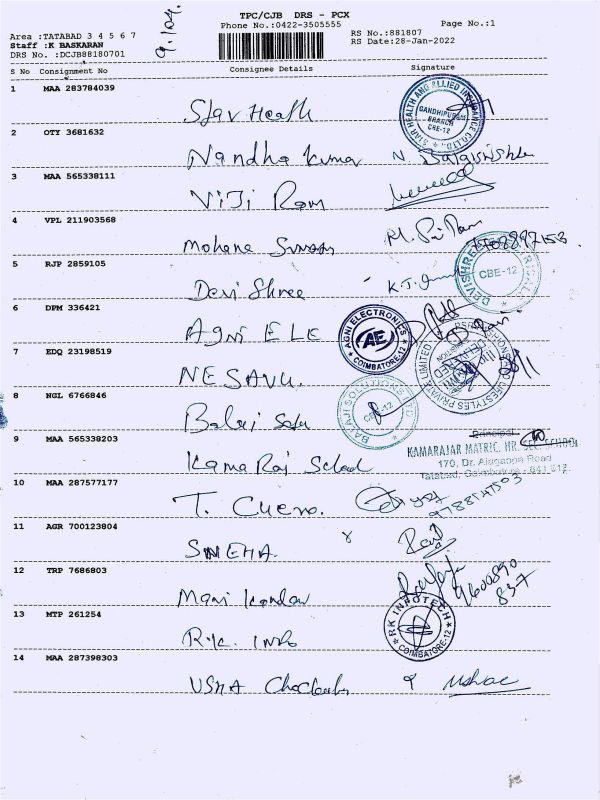 TPC/CJB DRS - PCX
Phone No.:0422-3505555
Page No.:1
Area :TATABAD 3 4 5 6 7
Staff :K BASKARAN
DRS No. :DCJB88180701
9.10
RS No.:881807
RS Date:28-Jan-2022
S No Consignment No Consignee Details Signature
1 MAA 283784039
Star Health
STAR HEALTH AND ALLIED INSURANCE CO LTD.,
GANDHIPURAM
BRANCH
CBE-12
2 OTY 3681632
Nandha Kumar N.
3 MAA 565338111
ViJi Ram
4 VPL 211903568
Mohana
5 RJP 2859105
Devi Shree K.J.
CBE-12
6 DPM 336421
Agni ELE
AGNI ELECTRONICS
AE
COIMBATORE-12
7 EDQ 23198519
NESAVU.
LIFESTYLES PRIVATE LIMITED
8 NGL 6766846
Balaji
BALAJI SOLUTIONS
CBE-12
9 MAA 565338203
Kama Raj School
Principal
KAMARAJAR MATRIC. HR. SEC. SCHOOL
170, Dr. Alagappa Road
Tatabad, Coimbatore - 641 012.
10 MAA 287577177
T. 
11 AGR 700123804
SNEHA.
12 TRP 7686803
Mani
9600890
837
13 MTP 261254
R.K. Info
RK INFOTECH
COIMBATORE-12
14 MAA 287398303
USHA